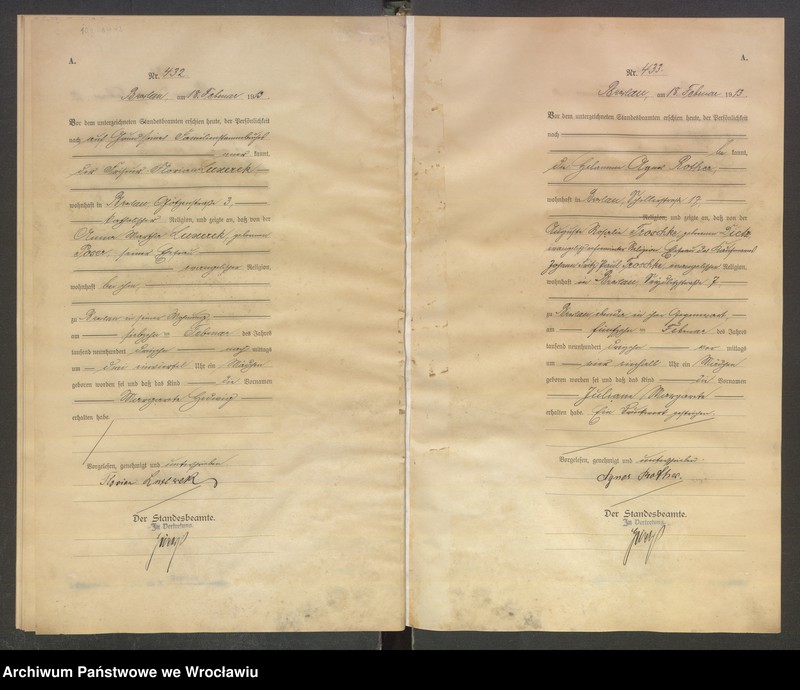 A.
Nr. 432
Breslau, am 18. Februar 1913.
Vor dem unterzeichneten Standesbeamten erschien heute, der Persönlichkeit
nach auf Grund seines Familienstammbuchs
kannt,
der Florian
wohnhaft in Breslau, 3,
katholischer Religion, und zeigte an, daß von der
Anna Martha geborenen
seiner Ehefrau
evangelischer Religion,
wohnhaft bei ihm
zu Breslau in seiner Wohnung
am sechzehnten Februar des Jahres
tausend neunhundert dreizehn nach mittags
um drei einviertel Uhr ein Mädchen
geboren worden sei und daß das Kind die Vornamen
Margarete Hedwig
erhalten habe.
Vorgelesen, genehmigt und unterschrieben
Florian
Der Standesbeamte.
In Vertretung.
A.
Nr. 433.
Breslau, am 18. Februar 1913.
Vor dem unterzeichneten Standesbeamten erschien heute, der Persönlichkeit
nach
be kannt,
die Hebamme Agnes Rother,
wohnhaft in Breslau, 17
Religion, und zeigte an, daß von der
Auguste Rosalie Troschke, geborenen
evangelisch Religion, Ehefrau des Kaufmanns
Johann Fritz Paul Troschke, evangelischer Religion,
wohnhaft in Breslau, 7
zu Breslau, ebenda in ihrer Gegenwart,
am fünfzehnten Februar des Jahres
tausend neunhundert dreizehn vor mittags
um einhalb Uhr ein Mädchen
geboren worden sei und daß das Kind die Vornamen
Margarete
erhalten habe. Ein Druckwort gestrichen.
Vorgelesen, genehmigt und unterschrieben
Agnes Rother.
Der Standesbeamte.
In Vertretung.
Archiwum Państwowe we Wrocławiu